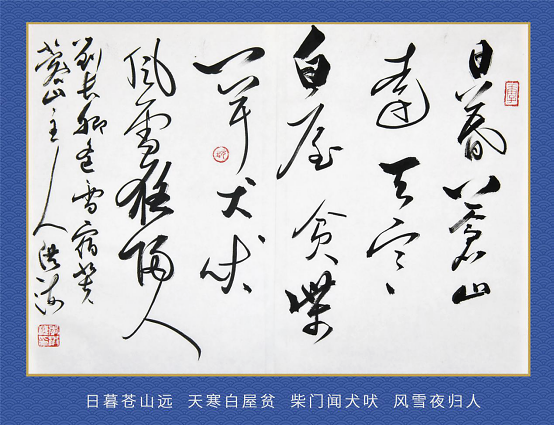 日暮蒼山
遠天寒
白屋貧柴
門聞犬吠
風雪夜歸人
劉長卿逢雪宿芙
蓉山主人洪
日暮苍山远 天寒白屋贫 柴门闻犬吠 风雪夜归人